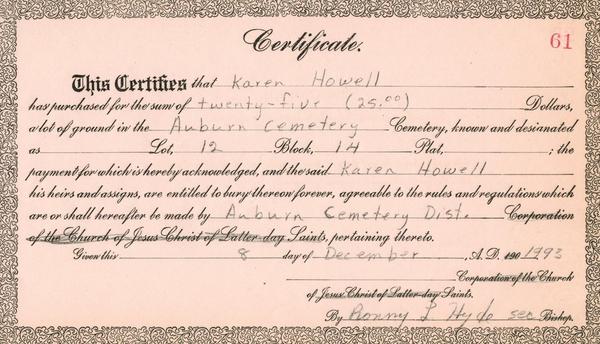 Certificate.
61
This Certifies that Karen Howell
has purchased for the sum of twenty-five (25.00) Dollars,
a lot of ground in the Auburn Cemetery Cemetery, known and designated
as Lot, 12 Block, 14 Plat, ; the
payment for which is hereby acknowledged, and the said Karen Howell
his heirs and assigns, are entitled to bury thereon forever, agreeable to the rules and regulations which
are or shall hereafter be made by Auburn Cemetery Dist. Corporation
of the Church of Jesus Christ of Latter-day Saints, pertaining thereto.
Given this 8 day of December, A. D. 190 1993
Corporation of the Church
of Jesus Christ of Latter-day Saints.
By Ronny L Hyde sec Bishop.